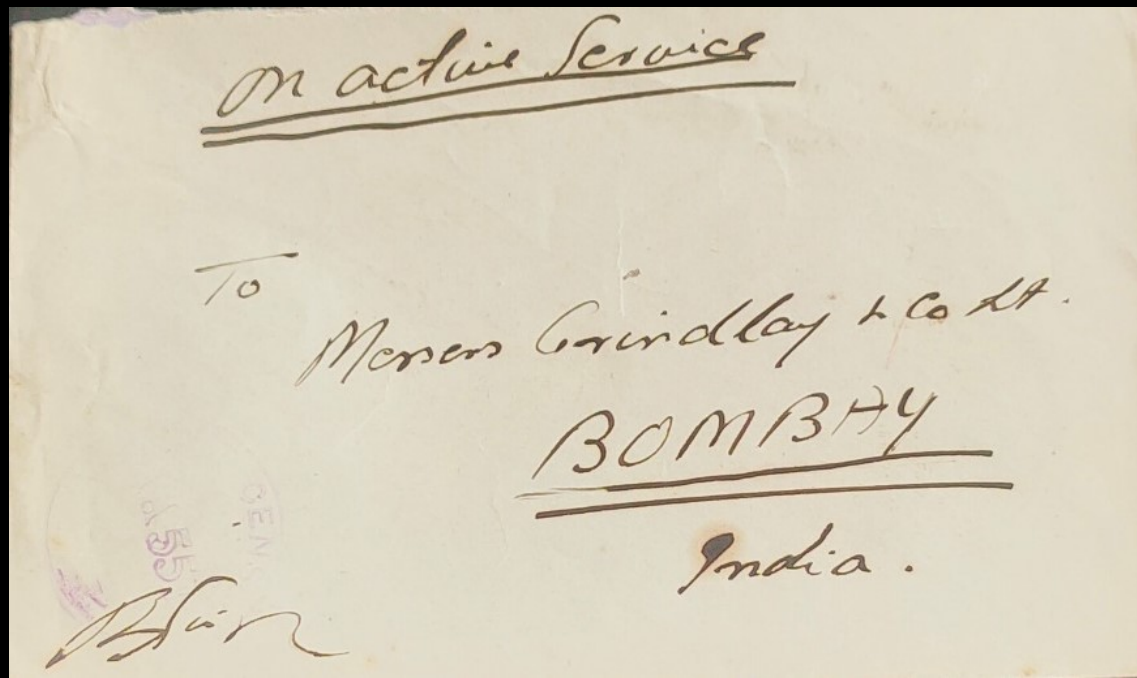 On active Service
To
Messrs Grindlay & Co Lt.
BOMBAY
India.
55